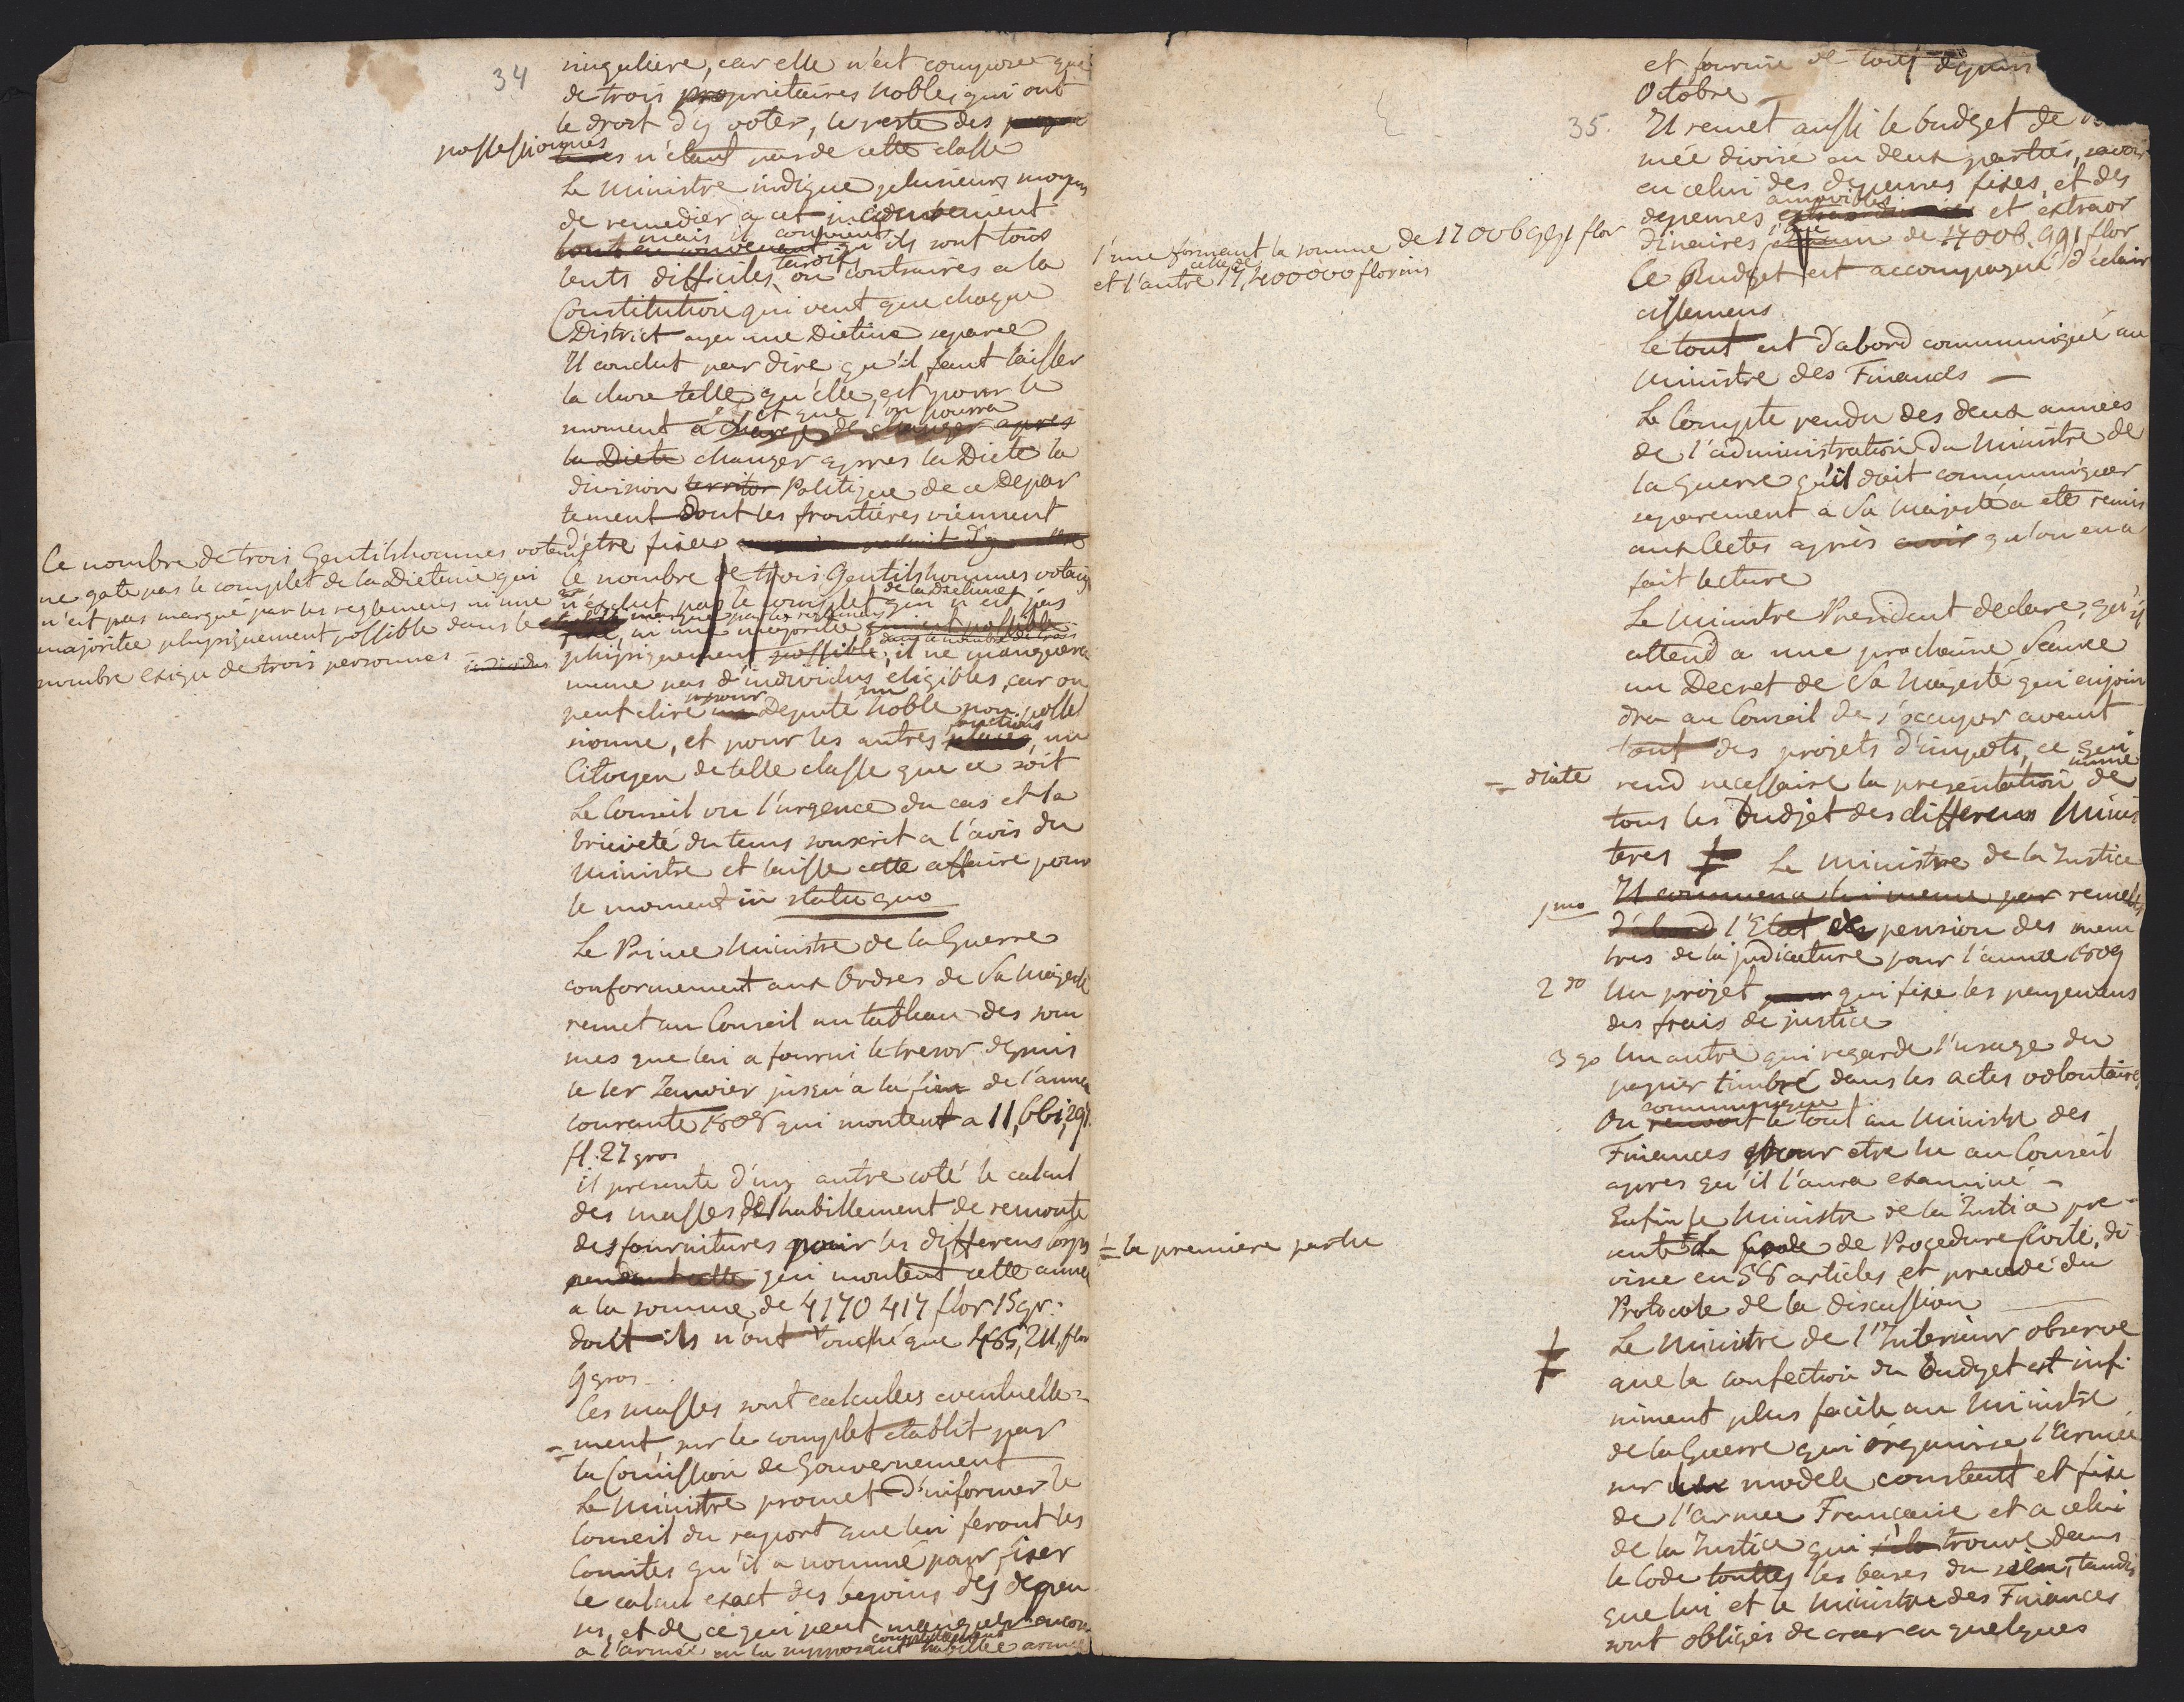 34
singuliere, car elle n'est composée que
de trois proprietaires nobles qui ont
le droit d'y voter, le reste des
possessionnés
n'étant pas de cette classe
Le Ministre indique plusieurs moyens
de remedier a cet inconvenient
mais il convient
tout en convenant qu'ils sont tous
tardifs
lents difficiles, ou contraires a la
Constitution qui veut que chaque
District aye une Dietine separée
Il conclut par dire qu'il faut laisser
la chose telle qu'elle est pour le
et que l'on pourra
moment a charge de changer apres
la Diete changer apres la Diete la
division territor Politique de ce Depar
tement dont les frontieres viennent
d'etre fixées
Ce nombre de trois Gentilshommes votans
ne gate pas le complet de la Dietine qui
n'est pas marqué par les reglemens ni une
majorité physiquement possible dans le
nombre exigu de trois personnes individus
le nombre de trois Gentilshommes votans
de la Dietine
n'exclut pas le complet qui n'est pas
marqué par les reglemens
fixé, ni une majorité qui est possible
dans le nombre de trois
phisiquement possible, il ne manquera
meme pas d'individus eligibles, car on
pour un
peut elire un Deputé noble non posses
fonctions
sionné, et pour les autres places, un
Citoyen de telle classe que ce soit
Le Conseil vu l'urgence du cas et la
brieveté du tems souscrit a l'avis du
Ministre et laisse cette affaire pour
le moment in statu quo
Le Prince Ministre de la Guerre
conformement aux Ordres de Sa Majesté
remet au Conseil un tableau des som
mes que lui a fourni le tresor depuis
le 1er Janvier jusqu'a la fin de l'année
courante 1808 qui montent a 11,661,291
fl. 27 gros
il presente d'un autre coté le calcul
des masses de l'habillement de remonte
des fournitures pour les differens Corps
pendant cette qui montent cette année
a la somme de 4170 417 flor 15 gr.
dont ils n'ont touché que 465,211, flor
9 gros
Ces masses sont calculées eventuelle=
=ment, sur le complet etablit par
la Comission de Gouvernement
Le Ministre promet d'informer le
Conseil du raport que lui feront les
Comités qu'il a nommé pour fixer
le calcul exact des besoins des depen
ses, et de ce qui peut manquer encore
completement
a l'armée en la supposant habillée armée
l'une formant la somme de 17 006 991 flor
celle de
et l'autre 17,400000 florins
= la premiere partie
35.
et fournie de tout depuis
Octobre
Il remet aussi le budget de
mée divisé en deux parties, savoir
en celui des depenses fixes, et des
amovibles
depenses extraordinaires et extraor
dinaires, de 17 006. 991 flor
Ce Budget est accompagné d'eclair
cissemens
Le tout est d'abord communiqué au
Ministre des Finances —
Le Compte rendu des deux années
de l'administration du Ministre de
la Guerre qu'il doit communiquer
separement a Sa Majesté a eté remis
aux Actes après avoir qu'on en a
fait lecture
Le Ministre President declare, qu'il
attend a une prochaine Seance
un Decret de Sa Majesté qui enjoin
dra au Conseil de s'occuper avant
tout des projets d'impots, ce qui
imme
= diate
rend necessaire la presentation de
tous les Budjet des differens Minis
teres ‡ Le Ministre de la Justice
1mo
Il commenca lui meme par remettre
d'abord l'Etat de pension des mem
bres de la judicature pour l'année 1809
2do Un projet qui fixe les payemens
des frais de justice
3o Un autre qui regarde l'usage du
papier timbré dans les actes volontaires
communique
On renvoit le tout au Ministre des
Finances pour etre lu au Conseil
apres qu'il l'aura examiné —
Enfin le Ministre de la Justice pre=
sente le Code de Procedure Civile, di
visé en 58 articles et precedé du
Protocole de la discussion
‡ Le Ministre de l'Interieur observe
que la confection du Budget est infi
niment plus facile au Ministre
de la Guerre qui organise l'Armée
sur un modele constant et fixe
de l'armée Francaise et a celui
de la Justice qui trouve dans
le Code touttes les bases du sien, tandis
que lui et le Ministre des Finances
sont obligés de creer en quelques